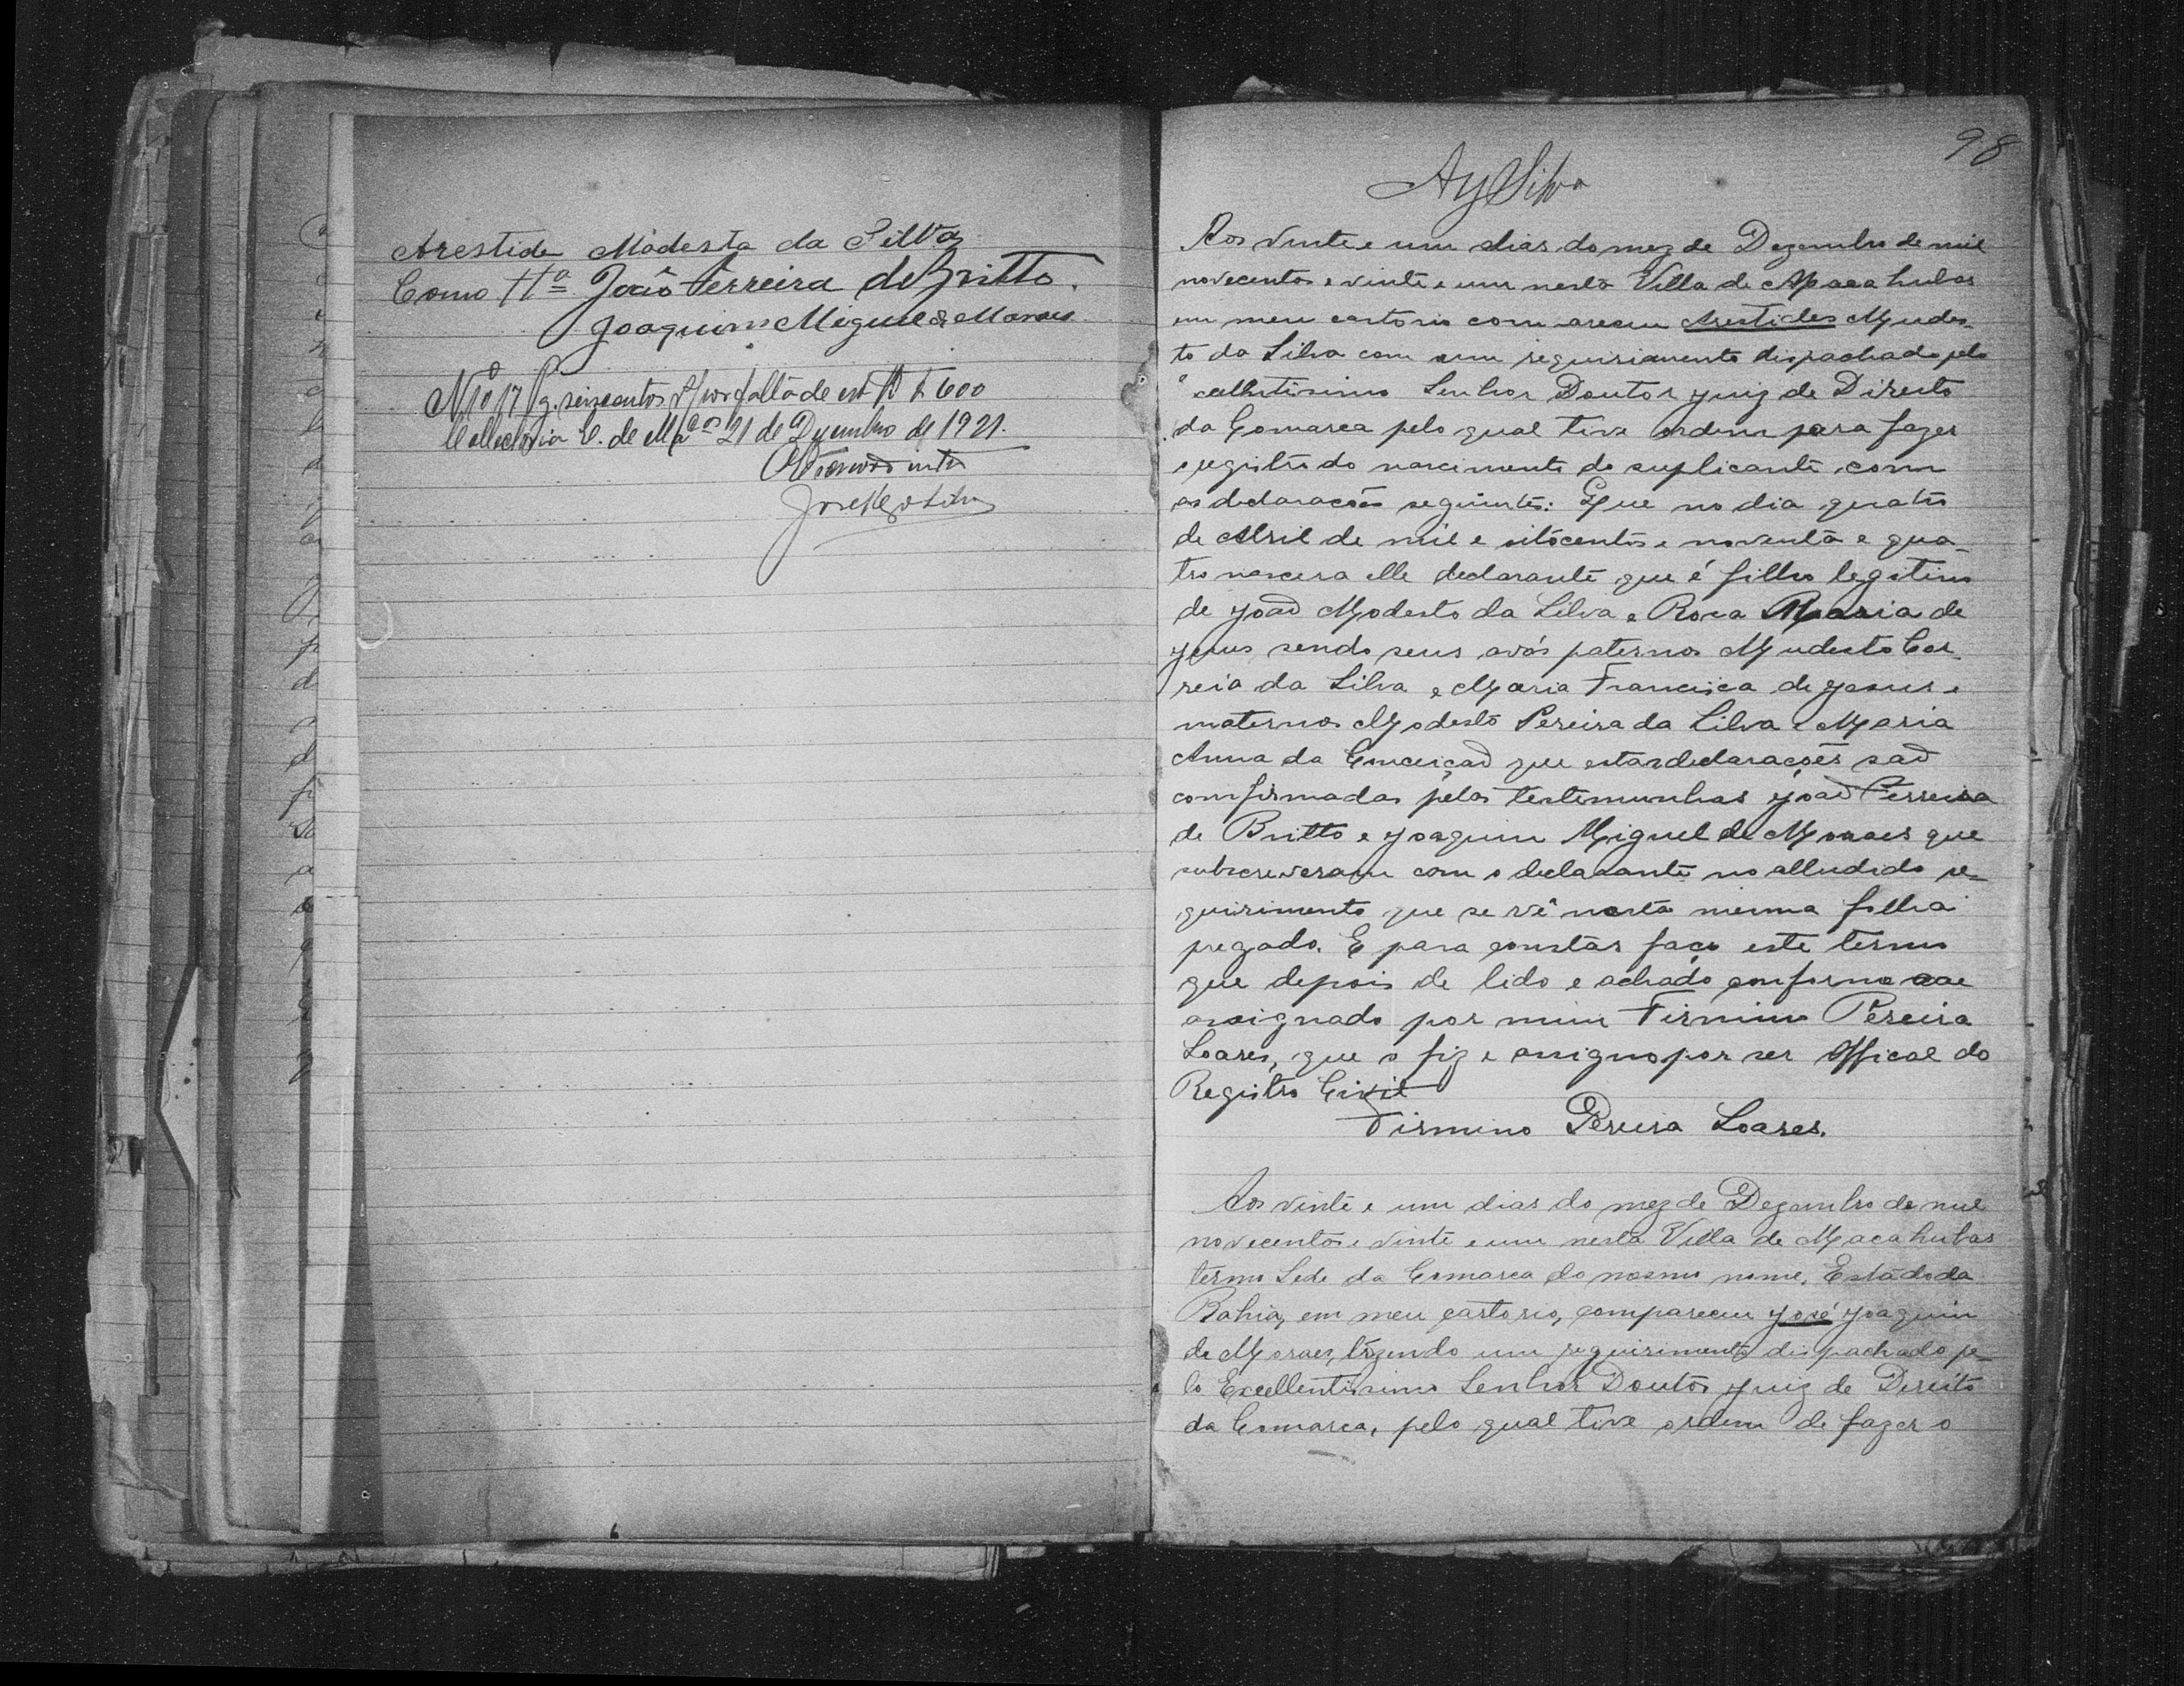 Arestide Modesta da Silva
Como Ttª João Ferreira de Britto.
Joaquim Miguel de Moraes
Nº 17 Pg. seiscentos rs/ por falta de est $600
Collectoria E. de Mac.as 21 de Dezembro de 1921.
98
Ay Silva
Aos vinte e um dias do mez de Dezembro de mil
novecentos e vinte e um nesta Villa de Macahubas
em meu cartorio compareceu Arestides Mudes-
to da Silva com um requirimento dispachado pelo
Excellentissimo Senhor Doutor Juiz de Direito
da Comarca pelo qual tive ordem para fazer
o registro do nascimento do suplicante com
as declarações seguintes: Que no dia quatro
de Abril de mil e oitocentos e noventa e qua-
tro nascera elle declarante que é filho legitimo
de João Modesto da Silva e Roza Maria de
Jesus sendo seus avós paternos Mudesto Cor-
reia da Silva e Maria Francisca de Jesus e
maternos Modesto Pereira da Silva e Maria
Anna da Conceição que estas declarações são
comfirmadas pelas testemunhas João Ferreira
de Britto e Joaquim Miguel de Moraes que
subscreveram com o declarante no alludido re-
quirimento que se vê nesta mesma folha
pregado. E para constar faço este termo
que depois de lido e achado conforme vae
assignado por mim Firmino Pereira
Soares, que o fiz e assigno por ser Offical do
Registro Civil
Firmino Pereira Soares.
Aos vinte e um dias do mez de Dezembro de mil
novecentos e vinte e um nesta Villa de Macahubas
termo Sede da Comarca do mesmo nome, Estado da
Bahia, em meu cartorio, compareceu José Joaquim
de Moraes, trazendo um requirimento dispachado pe-
lo Excellentissimo Senhor Doutor Juiz de Direito
da Comarca, pelo qual tive ordem de fazer o